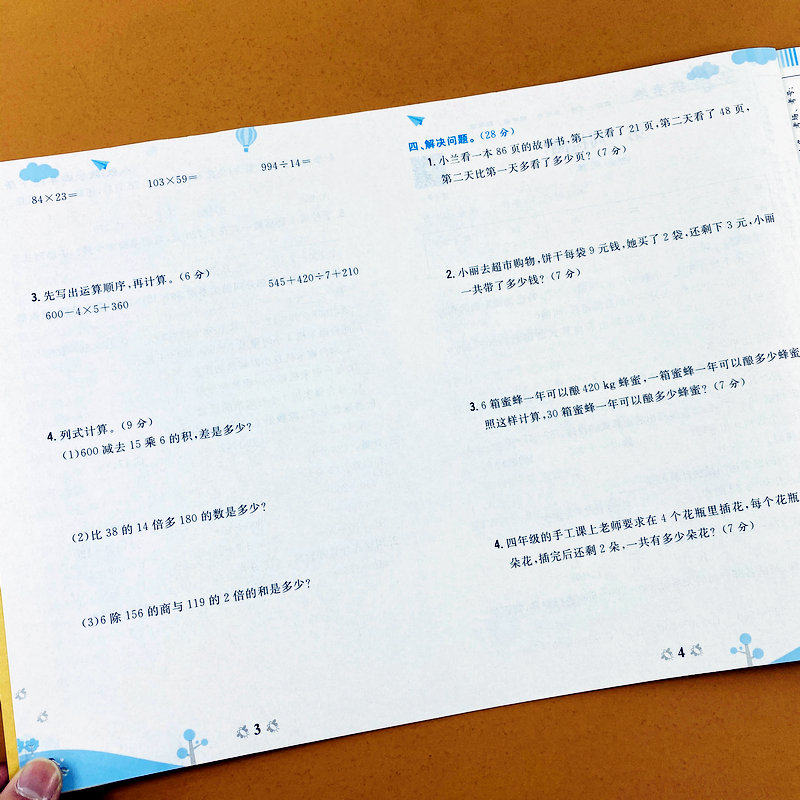 84×23=
103×59=
994÷14=
3.先写出运算顺序,再计算。(6 分)
600-4×5+360
545+420÷7+210
4.列式计算。(9 分)
(1)600 减去 15 乘 6 的积,差是多少?
(2)比 38 的 14 倍多 180 的数是多少?
(3)6 除 156 的商与 119 的 2 倍的和是多少?
3
四、解决问题。(28 分)
1.小兰看一本 86 页的故事书,第一天看了 21 页,第二天看了 48 页,
第二天比第一天多看了多少页?(7 分)
2.小丽去超市购物,饼干每袋 9 元钱,她买了 2 袋,还剩下 3 元,小丽
一共带了多少钱?(7 分)
3.6 箱蜜蜂一年可以酿 420 kg 蜂蜜,一箱蜜蜂一年可以酿多少蜂蜜
照这样计算,30 箱蜜蜂一年可以酿多少蜂蜜?(7 分)
4.四年级的手工课上老师要求在 4 个花瓶里插花,每个花瓶
朵花,插完后还剩 2 朵,一共有多少朵花?(7 分)
4